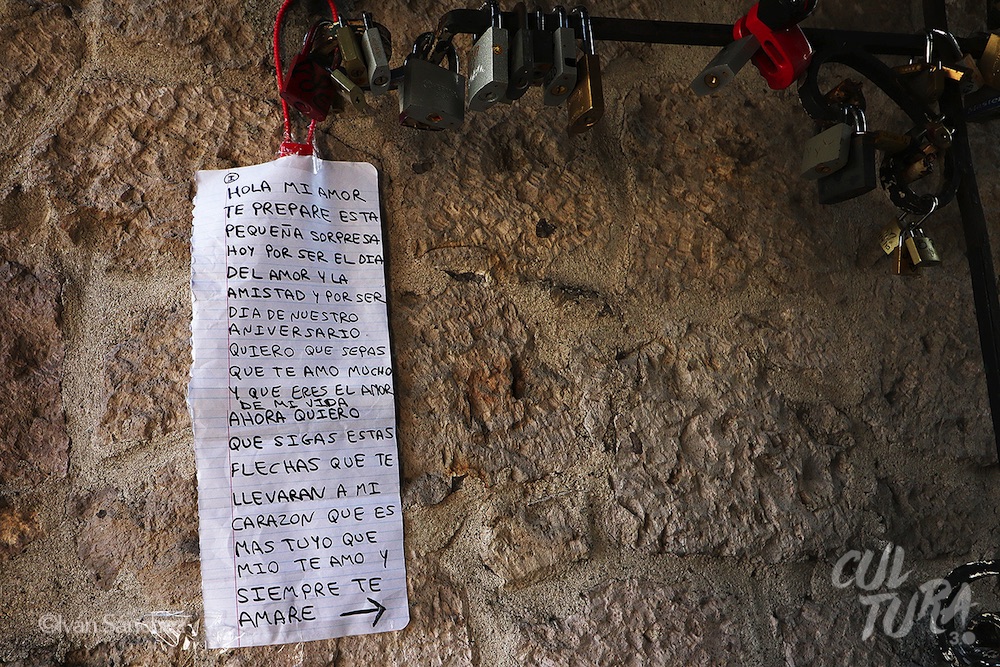 1
HOLA MI AMOR
TE PREPARE ESTA
PEQUEÑA SORPRESA
HOY POR SER EL DIA
DEL AMOR Y LA
AMISTAD Y POR SER
DIA DE NUESTRO
ANIVERSARIO.
QUIERO QUE SEPAS
QUE TE AMO MUCHO
Y QUE ERES EL AMOR
DE MI VIDA
AHORA QUIERO
QUE SIGAS ESTAS
FLECHAS QUE TE
LLEVARAN A MI
CARAZON QUE ES
MAS TUYO QUE
MIO TE AMO Y
SIEMPRE TE
AMARE →
©Iván
CUL
TURA
3.